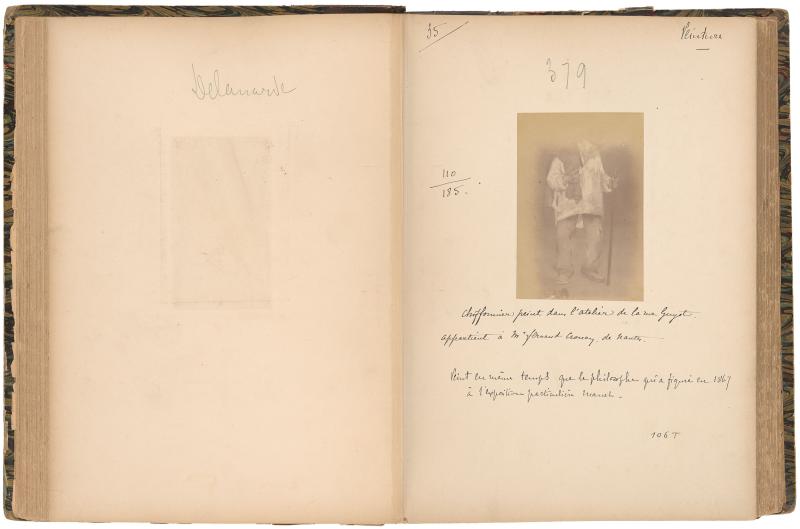 Delamarde
35
Peinture
379
110
185.
Chiffonnier, peint dans l'atelier de la rue Guyot.
appartient à Mr fernand Crouan, de Nantes.
Peint en même temps que le philosophe qui a figuré en 1867
à l'exposition particulière Manet.
106 T